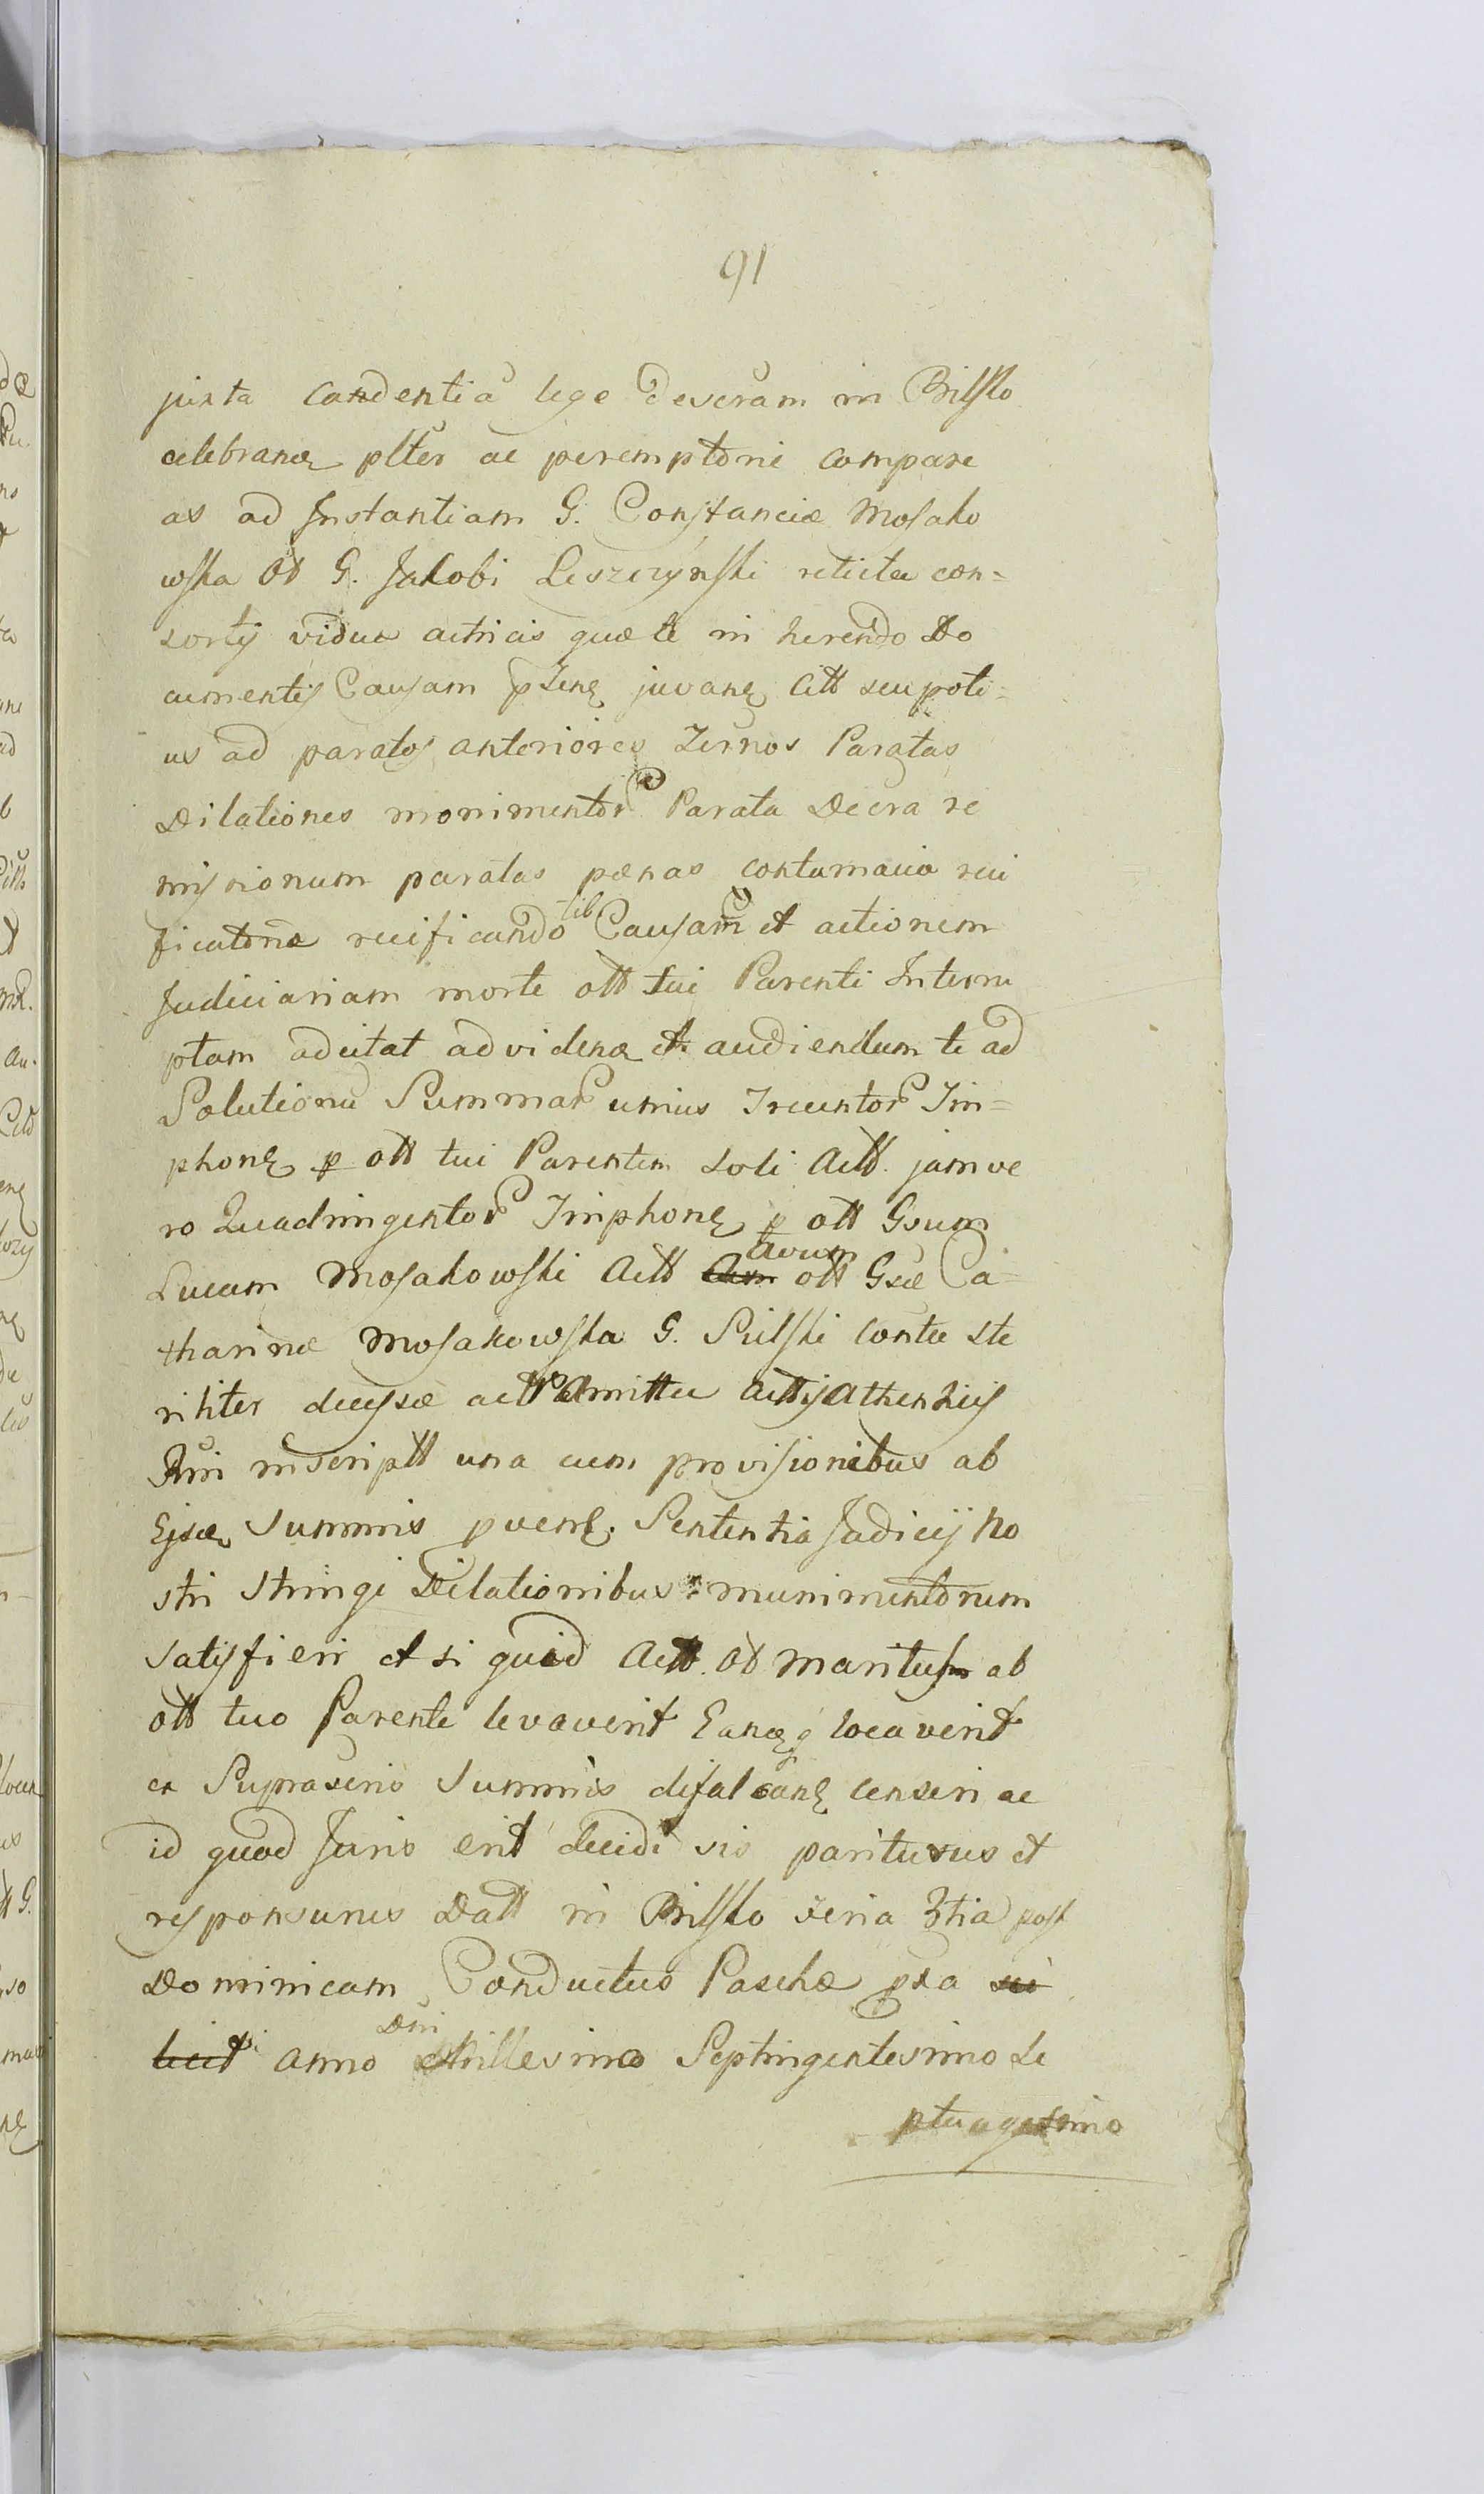 91
juxta candentia lege deseram in Bilsko
celebranæ plter ac peremptorie compare
as ad Instantiam G. Constanciæ Mosako
wska Ol G. Jakobi Leszczynski relictæ con=
sortij viduæ actricis quæ te in herendo Do
cumentis Causam pntens juvans Att seu poti=
us ad paratos anteriores Ternos Paratas
Dilationes monimentor Parata Decra re
missionum paratas pænas contumacia reci
ficatoria recificando sib Causam et actionem
Judiciariam morte ott tui Parenti Interru
ptam adcitat ad videnæ et audiendum te ad
Solutionu Summar unius Trecentor Im=
phone p ott tui Parentem soli Actt. jam ve
ro Quadringentor Tinphone p ott Gsum
Lucam Mosakowski Actt avum ott Gsæ Ca=
tharinæ Mosakowska G. Pilski contæ ste
riliter decessæ actt Amittæ actis Athenticis
inscriptt una cum provisionibus ab
Ejsæ Summis pvens. Sententia Judicij No
stri Stringi Dilationibus munimentorum
satisfieri et si quid Actt. Ol Maritus ab
ott tuo Parente levaverit Eanæq locaverit
ex Suprasrio Summis difalcans censeri ac
id quod Juris erit decidi sis pariturus et
responsurus Datt in Bilsko feria 3tia post
Dominicam Conductus Paschæ pxa sci
licet anno Dni Millesimo Septingentesimo Se
ptuagesimo